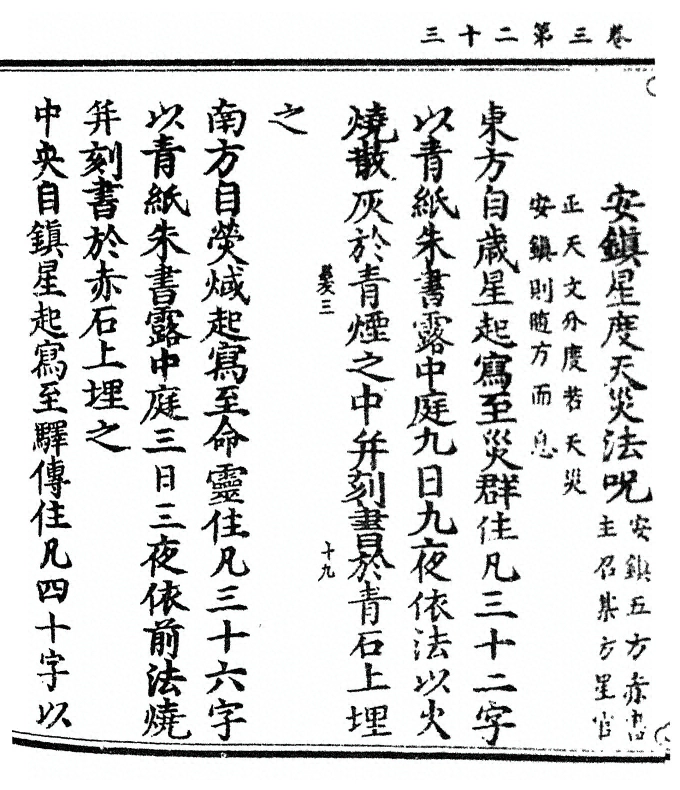 卷三第二十三
安鎮星度天災法呪
安鎮五方赤書
主召某方星官
正天文分度若天災
安鎮則隨方而息
東方自歲星起寫至災群住凡三十二字
以青紙朱書露中庭九日九夜依法以火
燒散灰於青煙之中并刻書於青石上埋
十九
之
南方自熒惑起寫至命靈住凡三十六字
以青紙朱書露中庭三日三夜依前法燒
并刻書於赤石上埋之
中央自鎮星起寫至驛傳住凡四十字以